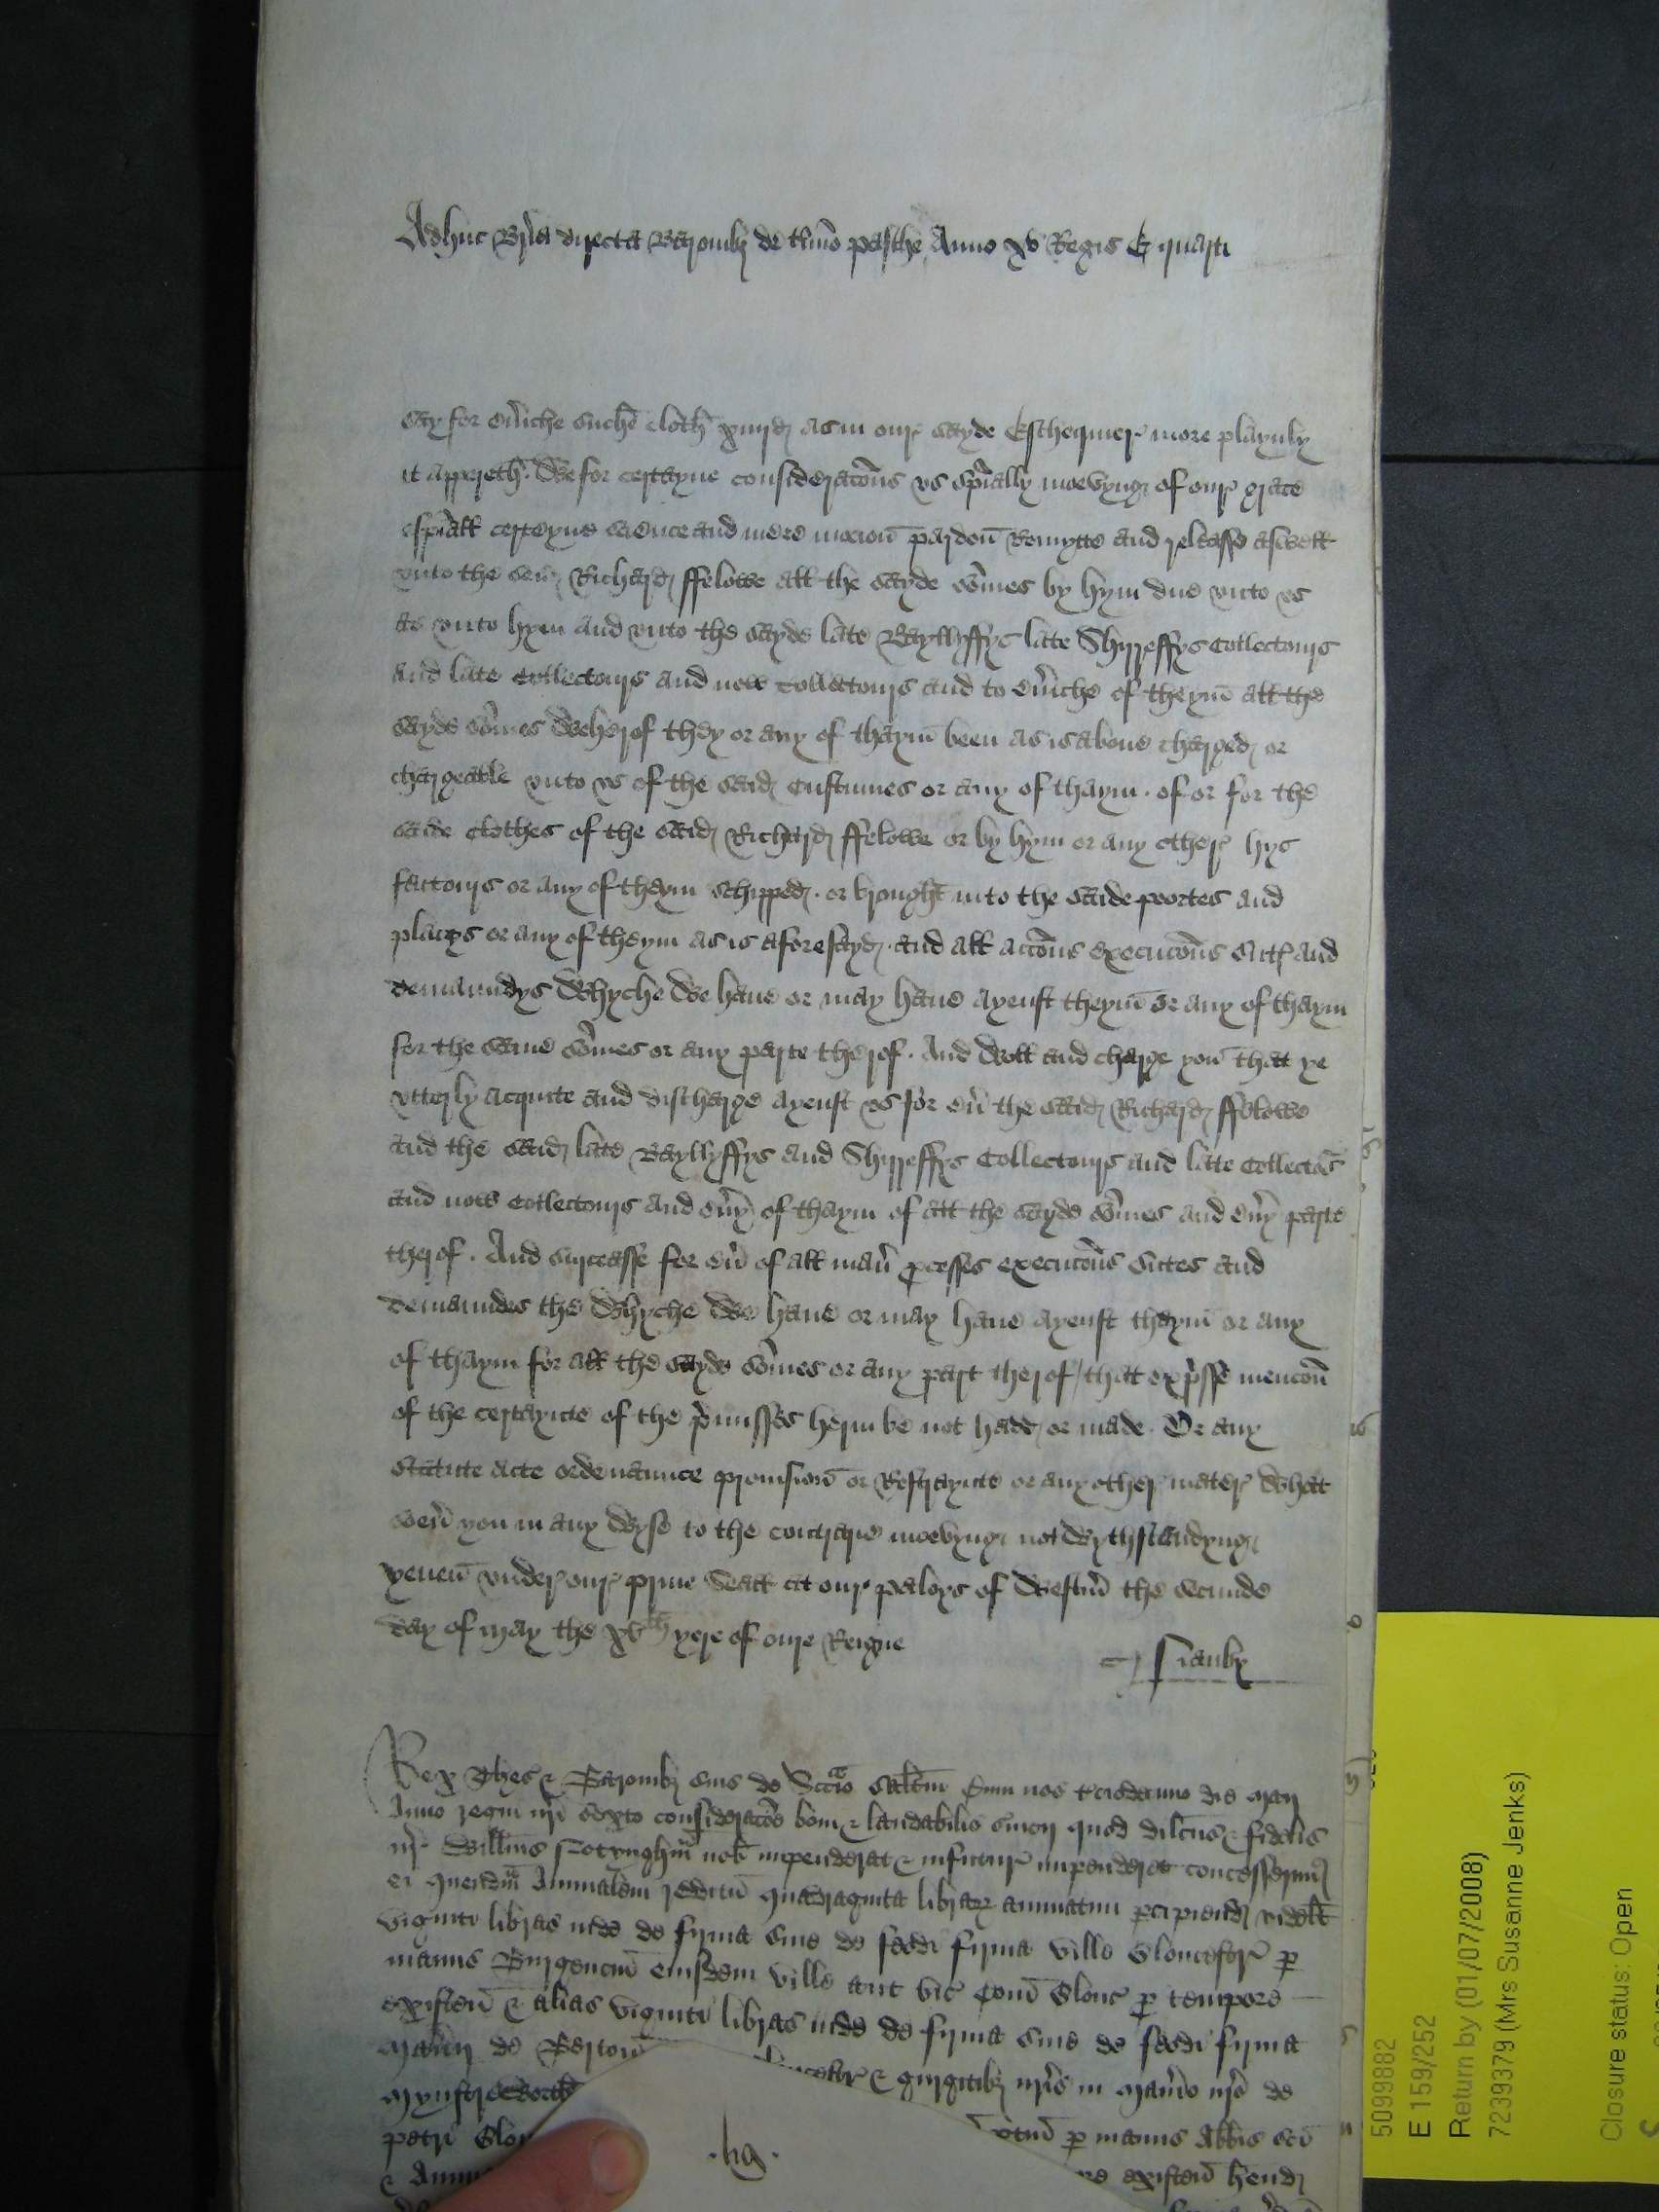 Adhuc Br̄ia directa Baronibꝫ de t̄mīo pasche Anno xv Regis E quarti
say for eūiche suche cloth xiiijd as in our sayde Eschequier more playnly
it appereth. We for certayne consideracōns vs sp̄ially moevyng of our grace
esp̄iall certeyne science and mere mocion pardon Remytte and relesse aswell
vnto the seid Richard ffelowe all the sayde som̄es by hym due vnto vs
as vnto hym and vnto the sayde late Bayllyffys late Shyreffys Collectours
and late Collectours and now Collectours and to eūiche of theym all the
sayde som̄es Wherof they or any of thaym been as is aboue charged or
chargeable vnto vs of the said Custumes or any of thaym. of or for the
saide clothes of the said Richard ffelowe or by hym or any other hys
factours or any of theym shipped. or brought into the saide poortes and
placys or any of theym as is aforesayd. and all accōns execucōns sutes and
demaundys Whyche We haue or may haue ayenst theym or any of thaym
for the same som̄es or any parte therof. And Woll and charge you that ye
vtterly acquite and discharge ayenst vs for eū the said Richard ffelowe
and the said late Bayllyffys and Shyreffys Collectours and late Collectōs
and now Collectours and eūy of thaym of all the sayde som̄es and eūy parte
therof. And surceasse for eū of all man̄ p̱cesses execucōns sutes and
demaundes the Whyche We haue or may haue ayenst theym or any
of thaym for all the sayde som̄es or any part therof / that exp̄sse mencōn
of the certaynte of the p̄misses herin be not hadd or made. Or any
Statute acte ordenaunce prouision or Restraynte or any other mater What
soeū you in any Wyse to the contrarie moevyng not Wythstandyng
yeuen vnder our priue Seall at our paloys of Westm̄ the secunde
day of may the xvth yere of oure Reigne
Rex Thes̄ & Baronibꝫ suis de Sccīo salt̄m Cum nos terciodecimo die Maij
Anno regni nr̄i sexto consideracōe boni & laudabilis s̄uicij quod dilc̄us & fidelis
nr̄ Will̄ms Notyngham nob̄ impenderat & infutur̄ impenderet concesserim̄
ei quendam Annualem redditū quadraginta librarꝫ annuatim p̱cipiend videlt̄
viginti libras inde de firma siue de feodi firma ville Gloucestr̄ p̱
manus Burgenciū eiusdem ville aut vic̄ Com̄ Glouc̄ p̱ tempore
existen̄ & alias viginti libras inde de firma siue de feodi firma
Man̄ij de Berton̄ & gurgitibꝫ nr̄is in Man̄io nr̄o de
Mynstreworth
petri Glou p̱ manus Abb̄is sc̄i
& Annu existen̄ h̄end
.hg.
5099882
E 159/252
Return by (01/07/2008)
7239379 (Mrs Susanne Jenks)
Closure status: Open